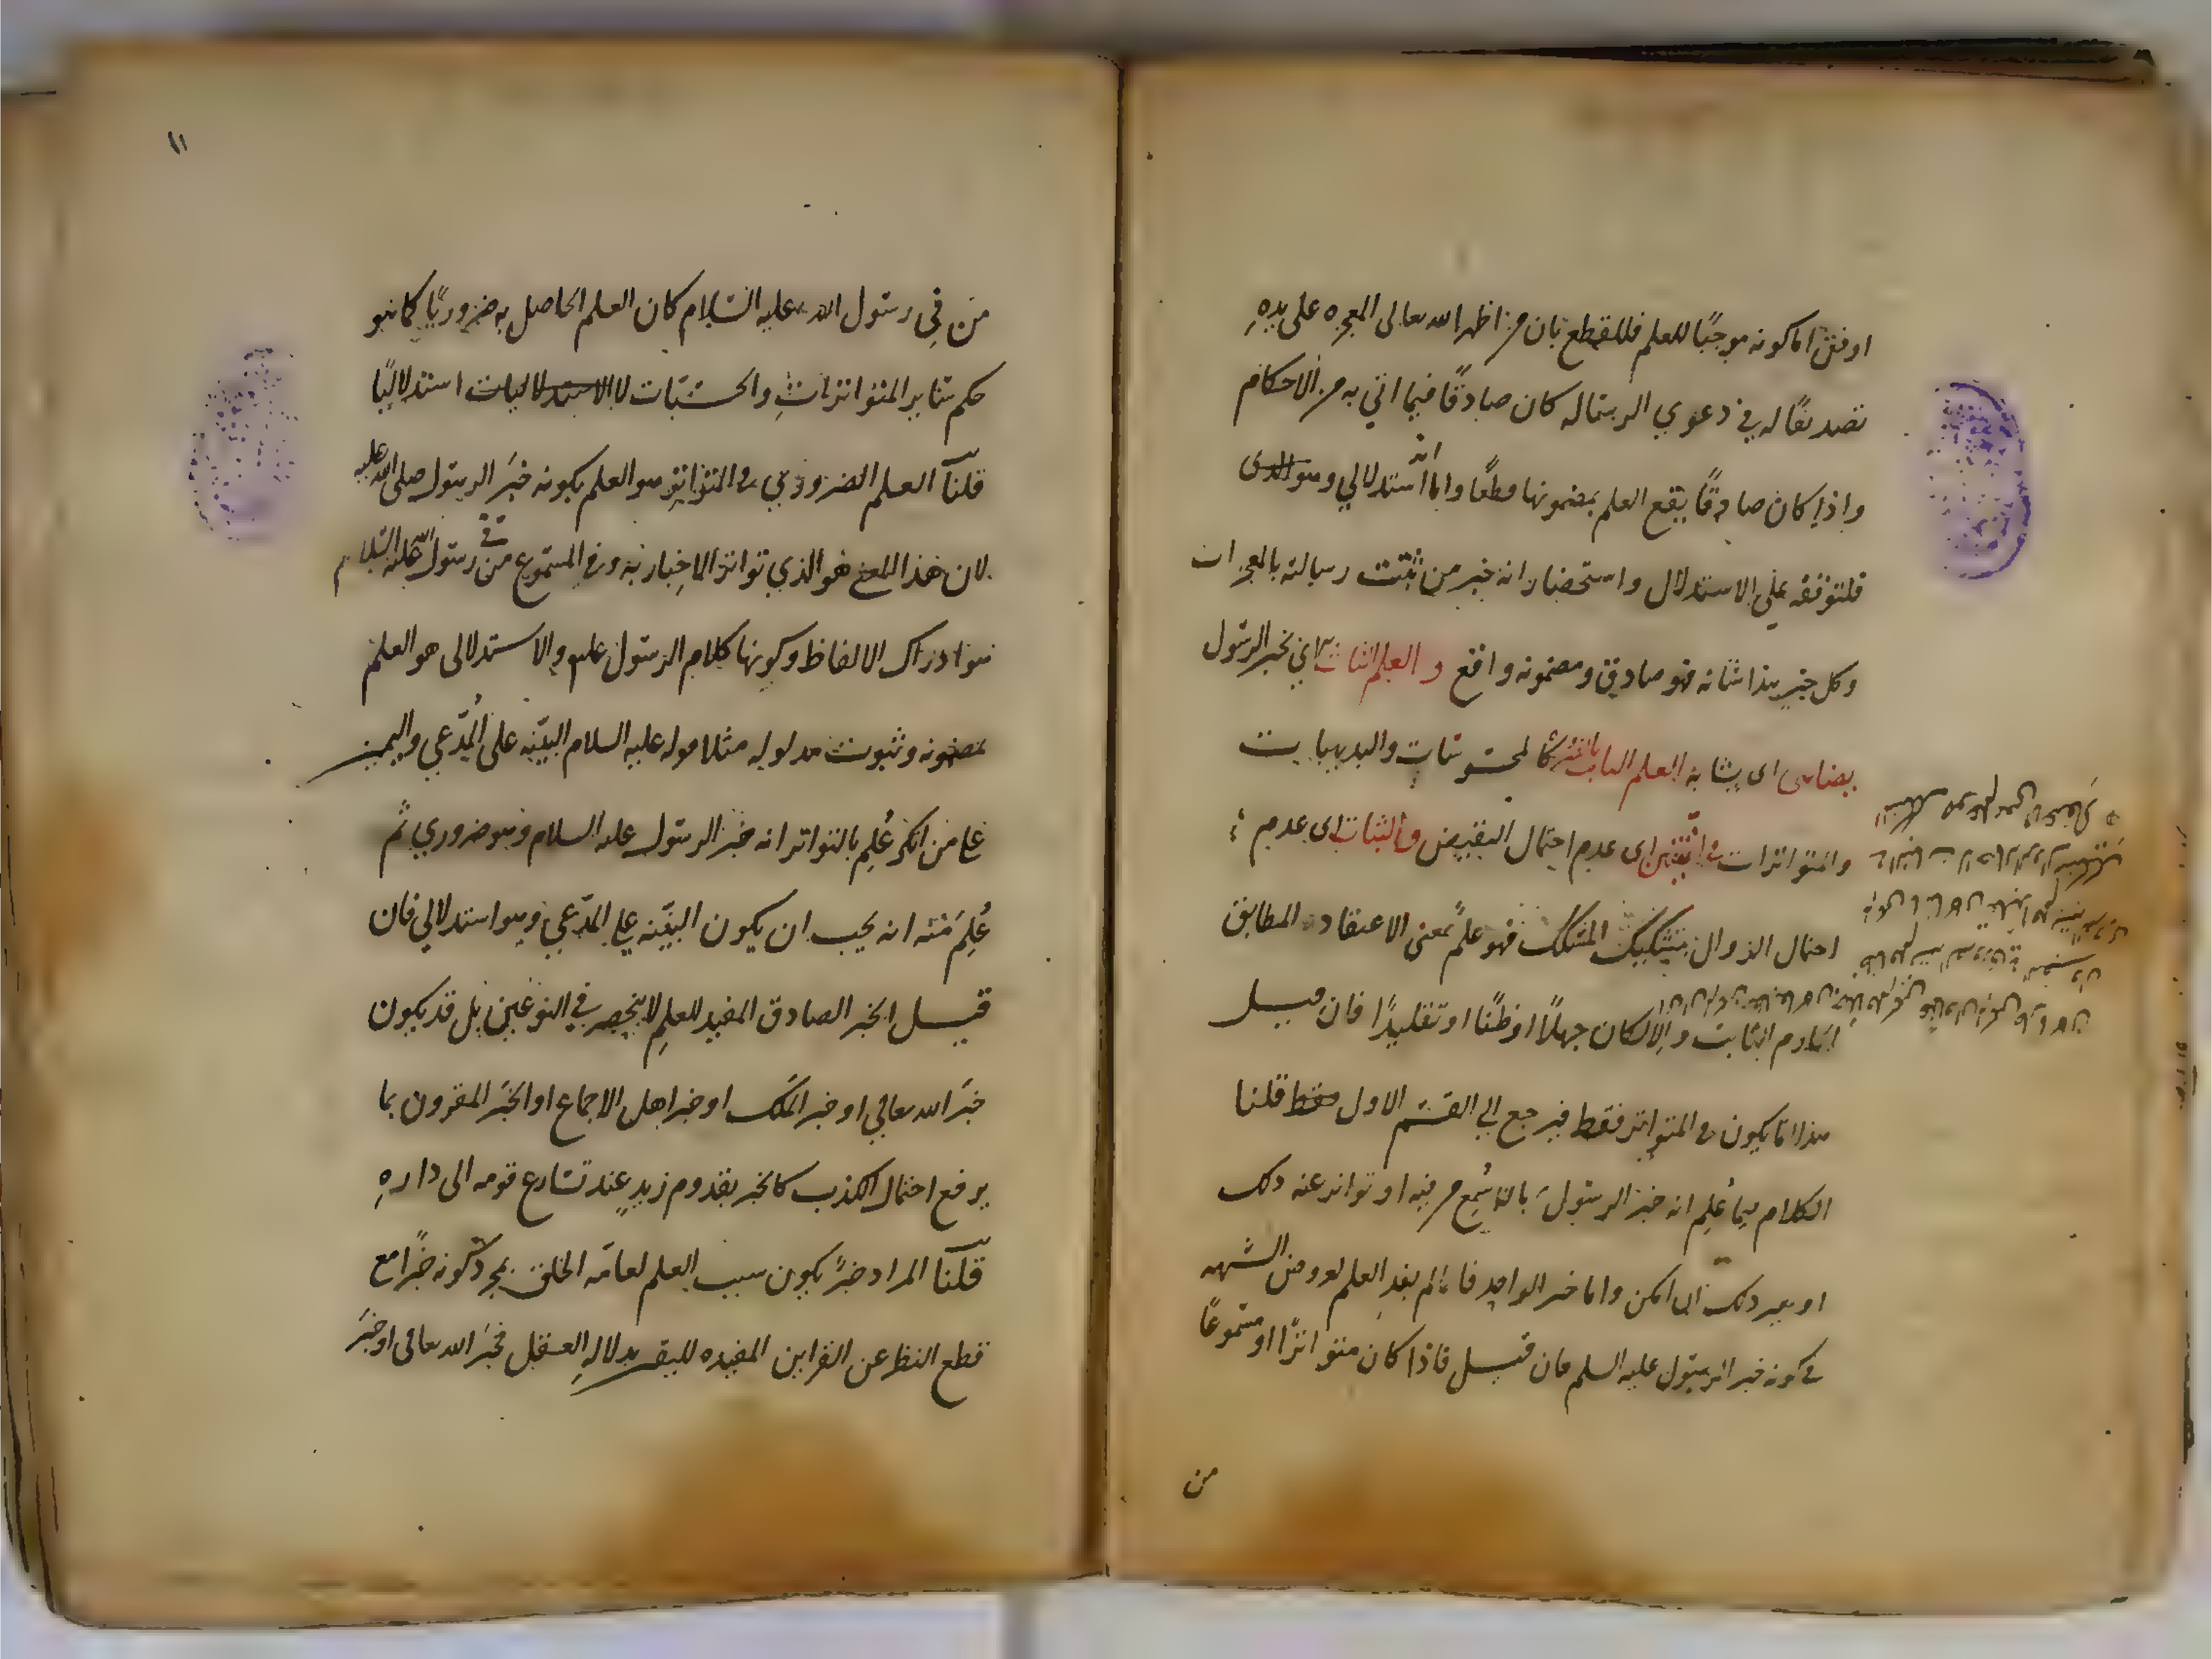 اوفق اما كونه موجبًا للعلم فللقطع بان من اظهر الله تعالى المعجزه على يدهِ
تصديقًا له في دعوي الرساله كان صادقًا فيما اتي به من الاحكام
واذا كان صادقًا يقع العلم بمضمونها قطعًا واما انه استدلالي وهو الذي
فلتوقفه على الاستدلال واستحضار انه خبر من ثبتت رسالته بالمعجزات
وكل خبر هذا شانه فهو صادق ومضمونه واقع و العلم الثابت به اي بخبر الرسول
يضاهى اى يشابه العلم الثابت بالضرورة كالمحسوسات والبديهيات
والمتواترات في التيقن اى عدم احتمال النقيض والثبات اى عدم
احتمال الزوال بتشكيك المشكك فهو علمٌ بمعنى الاعتقاد المطابق
الجازم الثابت والا لكان جهلًا او ظنًا او تقليدًا فان قيل
هذا انما يكون في المتواتر فقط فيرجع الي القسم الاول فقط قلنا
الكلام فيما عُلِم انه خبر الرسول بان سُمِع من فيه او تواتر عنه ذلك
او بغير ذلك ان امكن واما خبر الواحد فانما لم يفد العلم لعروض الشبهه
في كونه خبر الرسول عليه السلم فان قيل فاذا كان متواترًا او مسموعًا
من
١١
من فِي رسول الله عليه السلام كان العلم الحاصل به ضروريًا كما هو
حكم سائر المتواتراتِ والحسيّات لا الاستدلاليات استدلاليًا
قلنا العلم الضروري في المتواتر هو العلم بكونه خبَر الرسول صلى الله عليه
لان هذا المعنى هو الذي تواتر الاخبار به وفي المسموع من في رسول الله عليه السلام
هو ادراك الالفاظ وكونها كلام الرسول عليه والاستدلالى هو العلم
بمضمونه وثبوت مدلوله مثلا قوله عليه السلام البيّنه على المُدّعي واليمين
على من انكر عُلِم بالتواتر انه خبر الرسول عليه السلام وهو ضروري ثم
عُلِمَ منه انه يجب ان يكون البيّنه على المدّعي وهو استدلالي فان
قيل الخبر الصادق المفيد للعلمِ لا ينحصر في النوعين بل قد يكون
خبَر الله تعالي او خبر المَلَك او خبر اهل الاجماع او الخبَر المقرون بما
يرفع احتمال الكذب كالخبر بقدوم زيدٍ عند تسارع قومه الى دارهِ
قلنا المراد خبرٌ يكون سبب العلم لعامّه الخلق بمجرد كونه خبرًا مع
قطع النظر عن القراين المفيده لليقين بدلالهِ العقل فخبَر الله تعالى او خبَر